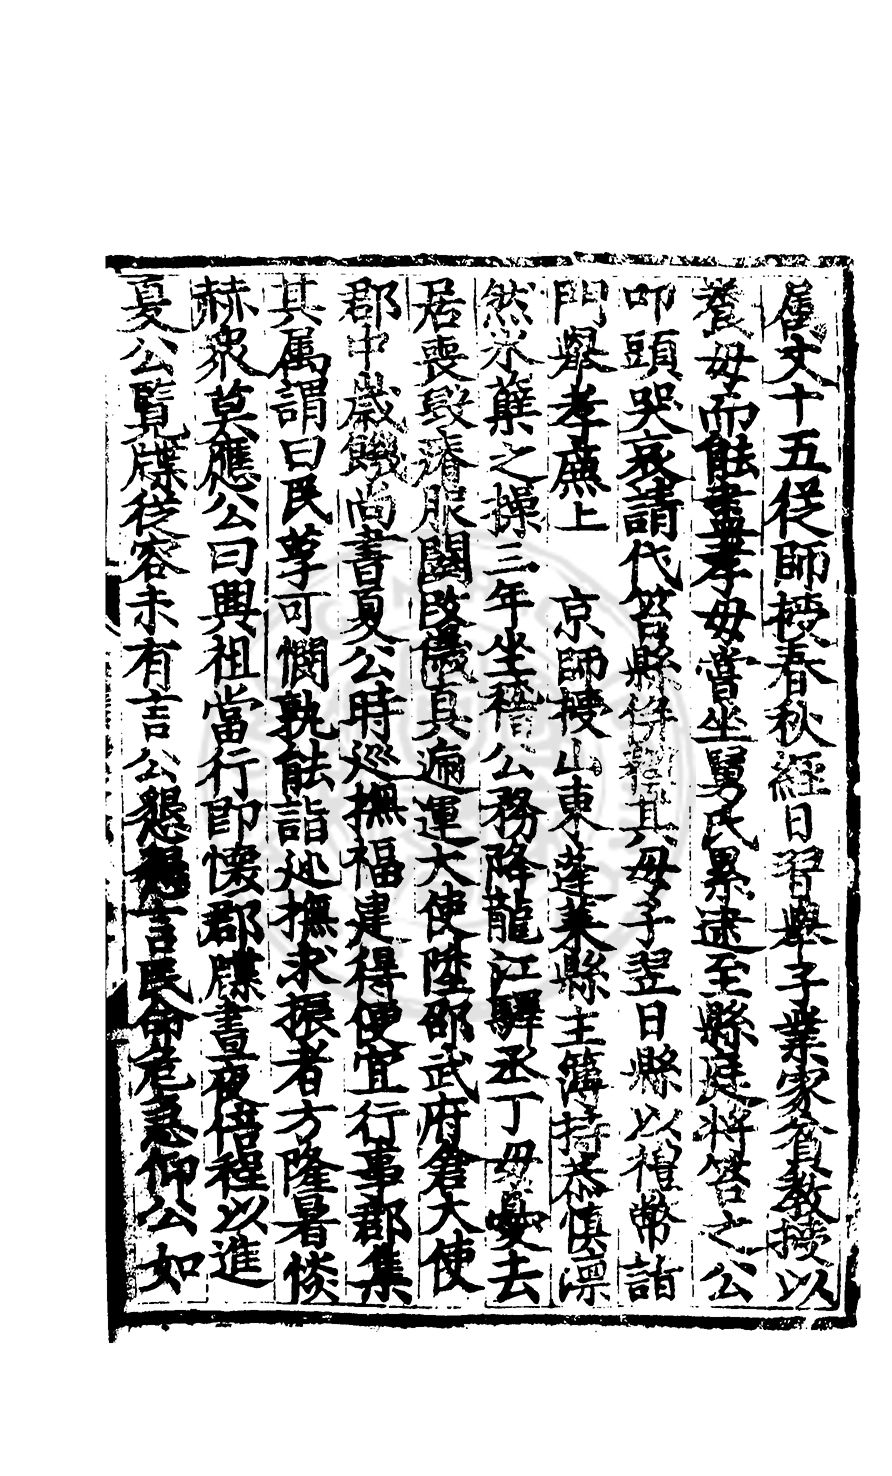 屬文十五從師授春秋經日習舉子業家貧教授以
養母而能盡孝母嘗坐舅氏累逮至縣庭將笞之公
叩頭哭哀請代笞縣併釋其母子翌日縣以禮幣詣
門舉孝廉上　京師授山東蓬萊縣主簿持恭慎凜
然氷蘗之操三年坐稽公務降龍江驛丞丁母憂去
居喪毀瘠服闋改儀真遞運大使陞邵武府倉大使
郡中歲饑尚書夏公時巡撫福建得便宜行事郡集
其属謂曰民莩可憫孰能詣廵撫求振者方隆暑惔
赫衆莫應公曰興祖當行即懷郡牒晝夜倍程以進
夏公覽牒從容未有言公懇言民命危急仰公如